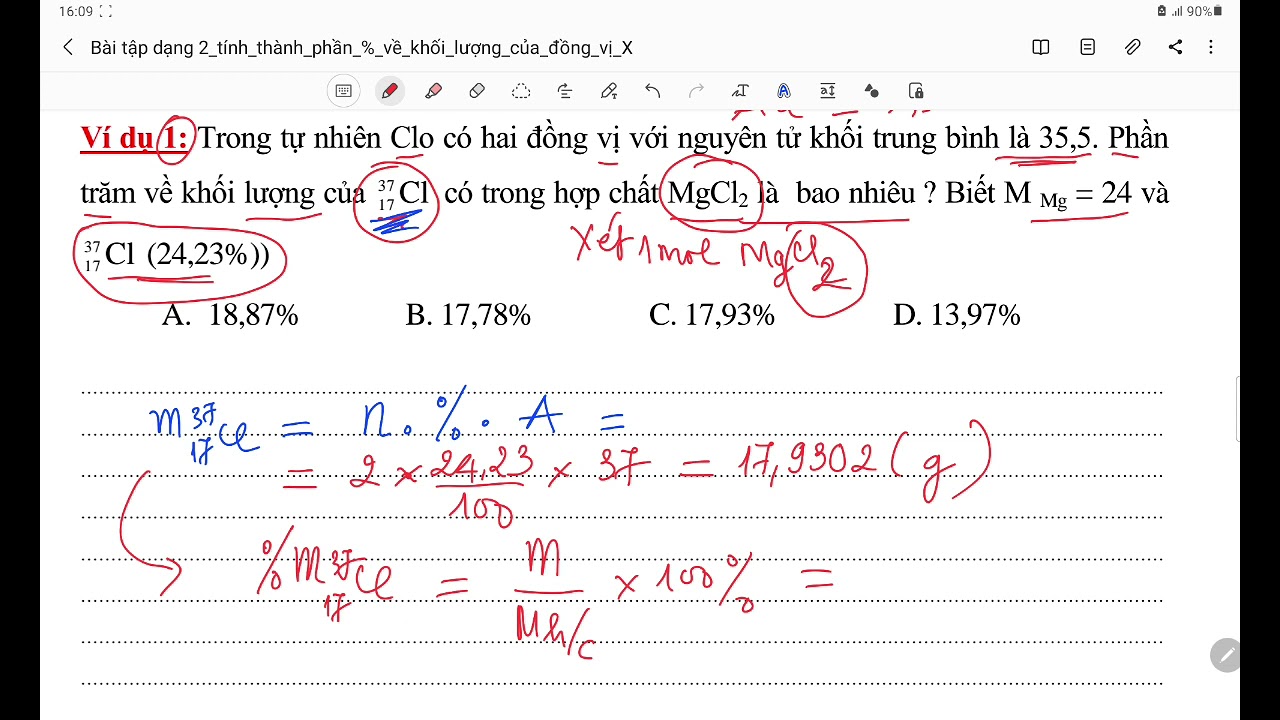 16:09 90%
Bài tập dạng 2_tính_thành_phần_%_về_khối_lượng_của_đồng_vị_X
Ví dụ 1: Trong tự nhiên Clo có hai đồng vị với nguyên tử khối trung bình là 35,5. Phần
trăm về khối lượng của ³⁷₁₇Cl có trong hợp chất MgCl₂ là bao nhiêu ? Biết M Mg = 24 và
³⁷₁₇Cl (24,23%))
Xét 1 mol MgCl₂
A. 18,87% B. 17,78% C. 17,93% D. 13,97%
m ³⁷₁₇Cl = n . % . A =
= 2 × 24,23/100 × 37 = 17,9302 (g)
% m ³⁷₁₇Cl = m / M h/c × 100% =